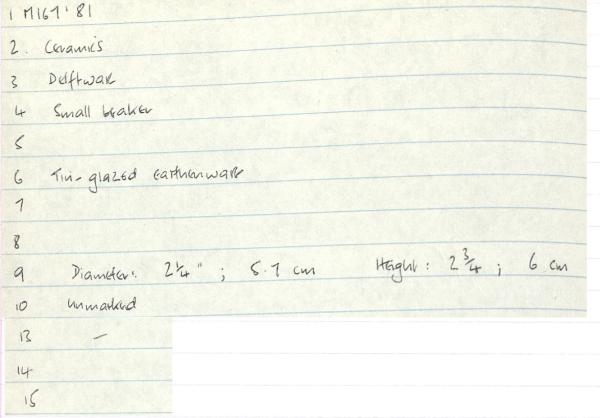 1 M167'81
2. Ceramics
3 Delftware
4 Small beaker
5
6 Tin-glazed earthenware
7
8
9 Diameter: 2¼" ; 5.7 cm Height: 2¾ ; 6 cm
10 Unmarked
13 —
14
15